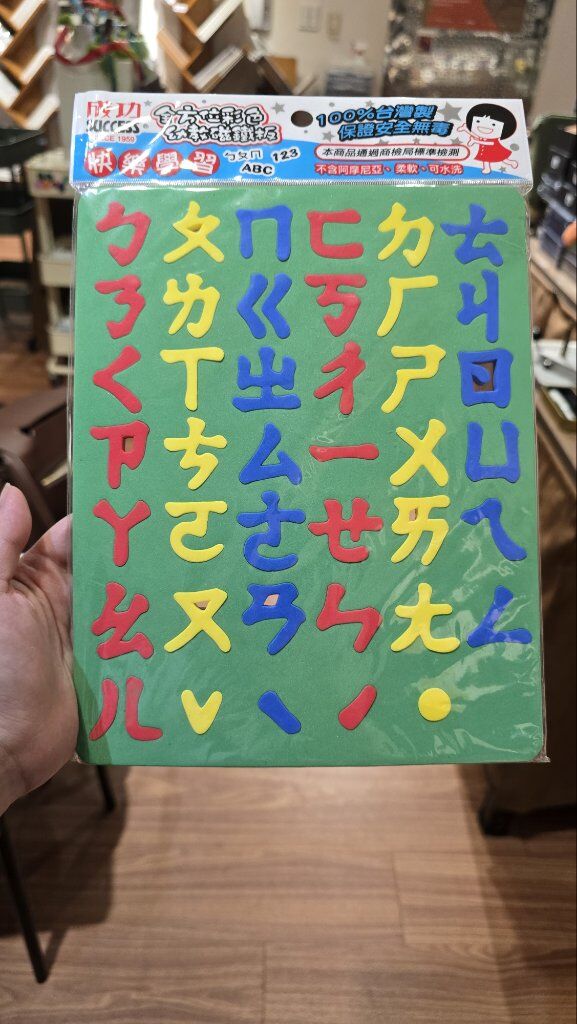 成功
SUCCESS®
SINCE 1959
全方位彩色
磁鐵板
快樂學習
ㄅㄆㄇ 123
ABC
100%台灣製
保證安全無毒
本商品通過商檢局標準檢測
不含阿摩尼亞、柔軟、可水洗
ㄅ ㄆ ㄇ ㄈ ㄉ ㄊ
ㄋ ㄌ ㄍ ㄎ ㄏ ㄐ
ㄑ ㄒ ㄓ ㄔ ㄕ ㄖ
ㄗ ㄘ ㄙ ㄧ ㄨ ㄩ
ㄚ ㄛ ㄜ ㄝ ㄞ ㄟ
ㄠ ㄡ ㄢ ㄣ ㄤ ㄥ
ㄦ ˇ ˋ ˊ ˙